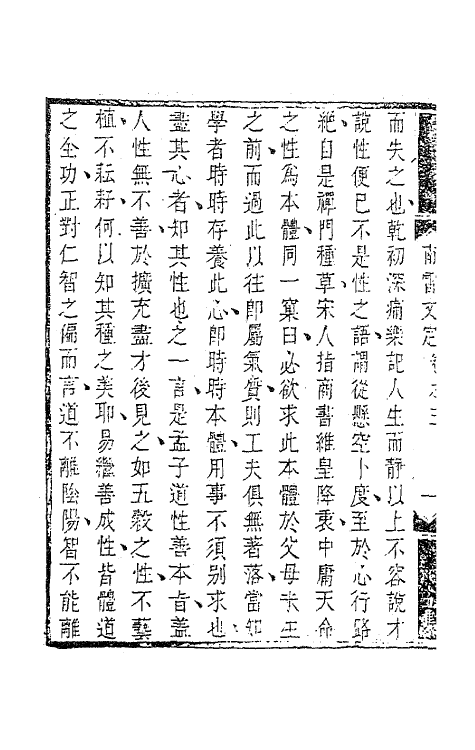 而失之也乾初深痛樂記人生而靜以上不容說才
說性便已不是性之語謂從懸空卜度至於心行路
絕自是禪門種草宋人指商書維皇降衷中庸天命
之性為本體同一窠臼必欲求此本體於父母未生
之前而過此以往即屬氣質則工夫俱無著落當知
學者時時存養此心即時時本體用事不須別求也
盡其心者知其性也之一言是孟子道性善本旨蓋
人性無不善於擴充盡才後見之如五穀之性不藝
植不耘耔何以知其種之美耶易繼善成性皆體道
之全功正對仁智之偏而言道不離陰陽智不能離
南雷文定